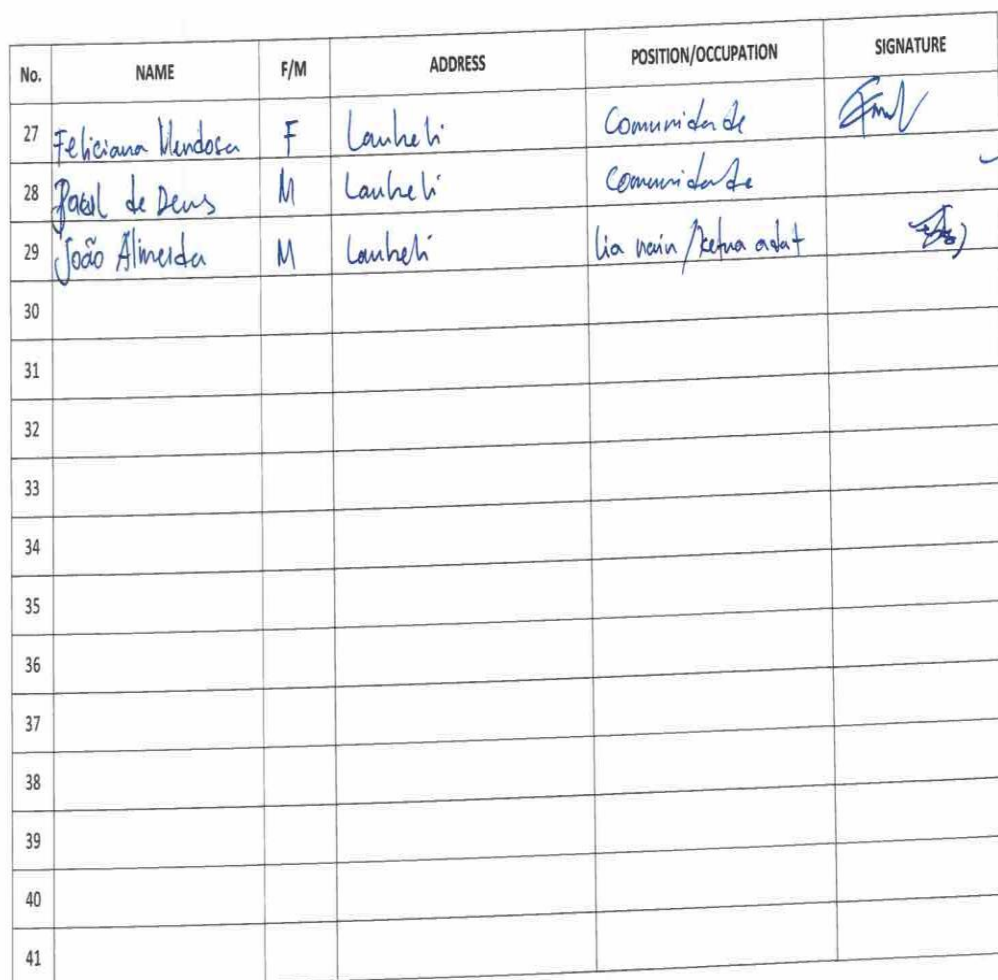 No. NAME F/M ADDRESS POSITION/OCCUPATION SIGNATURE
27 Feliciana Mendosa F Lauheli Comunidade
28 de Deus M Lauheli Comunidade
29 João Almeida M Lauheli lia nain /ketua adat
30
31
32
33
34
35
36
37
38
39
40
41